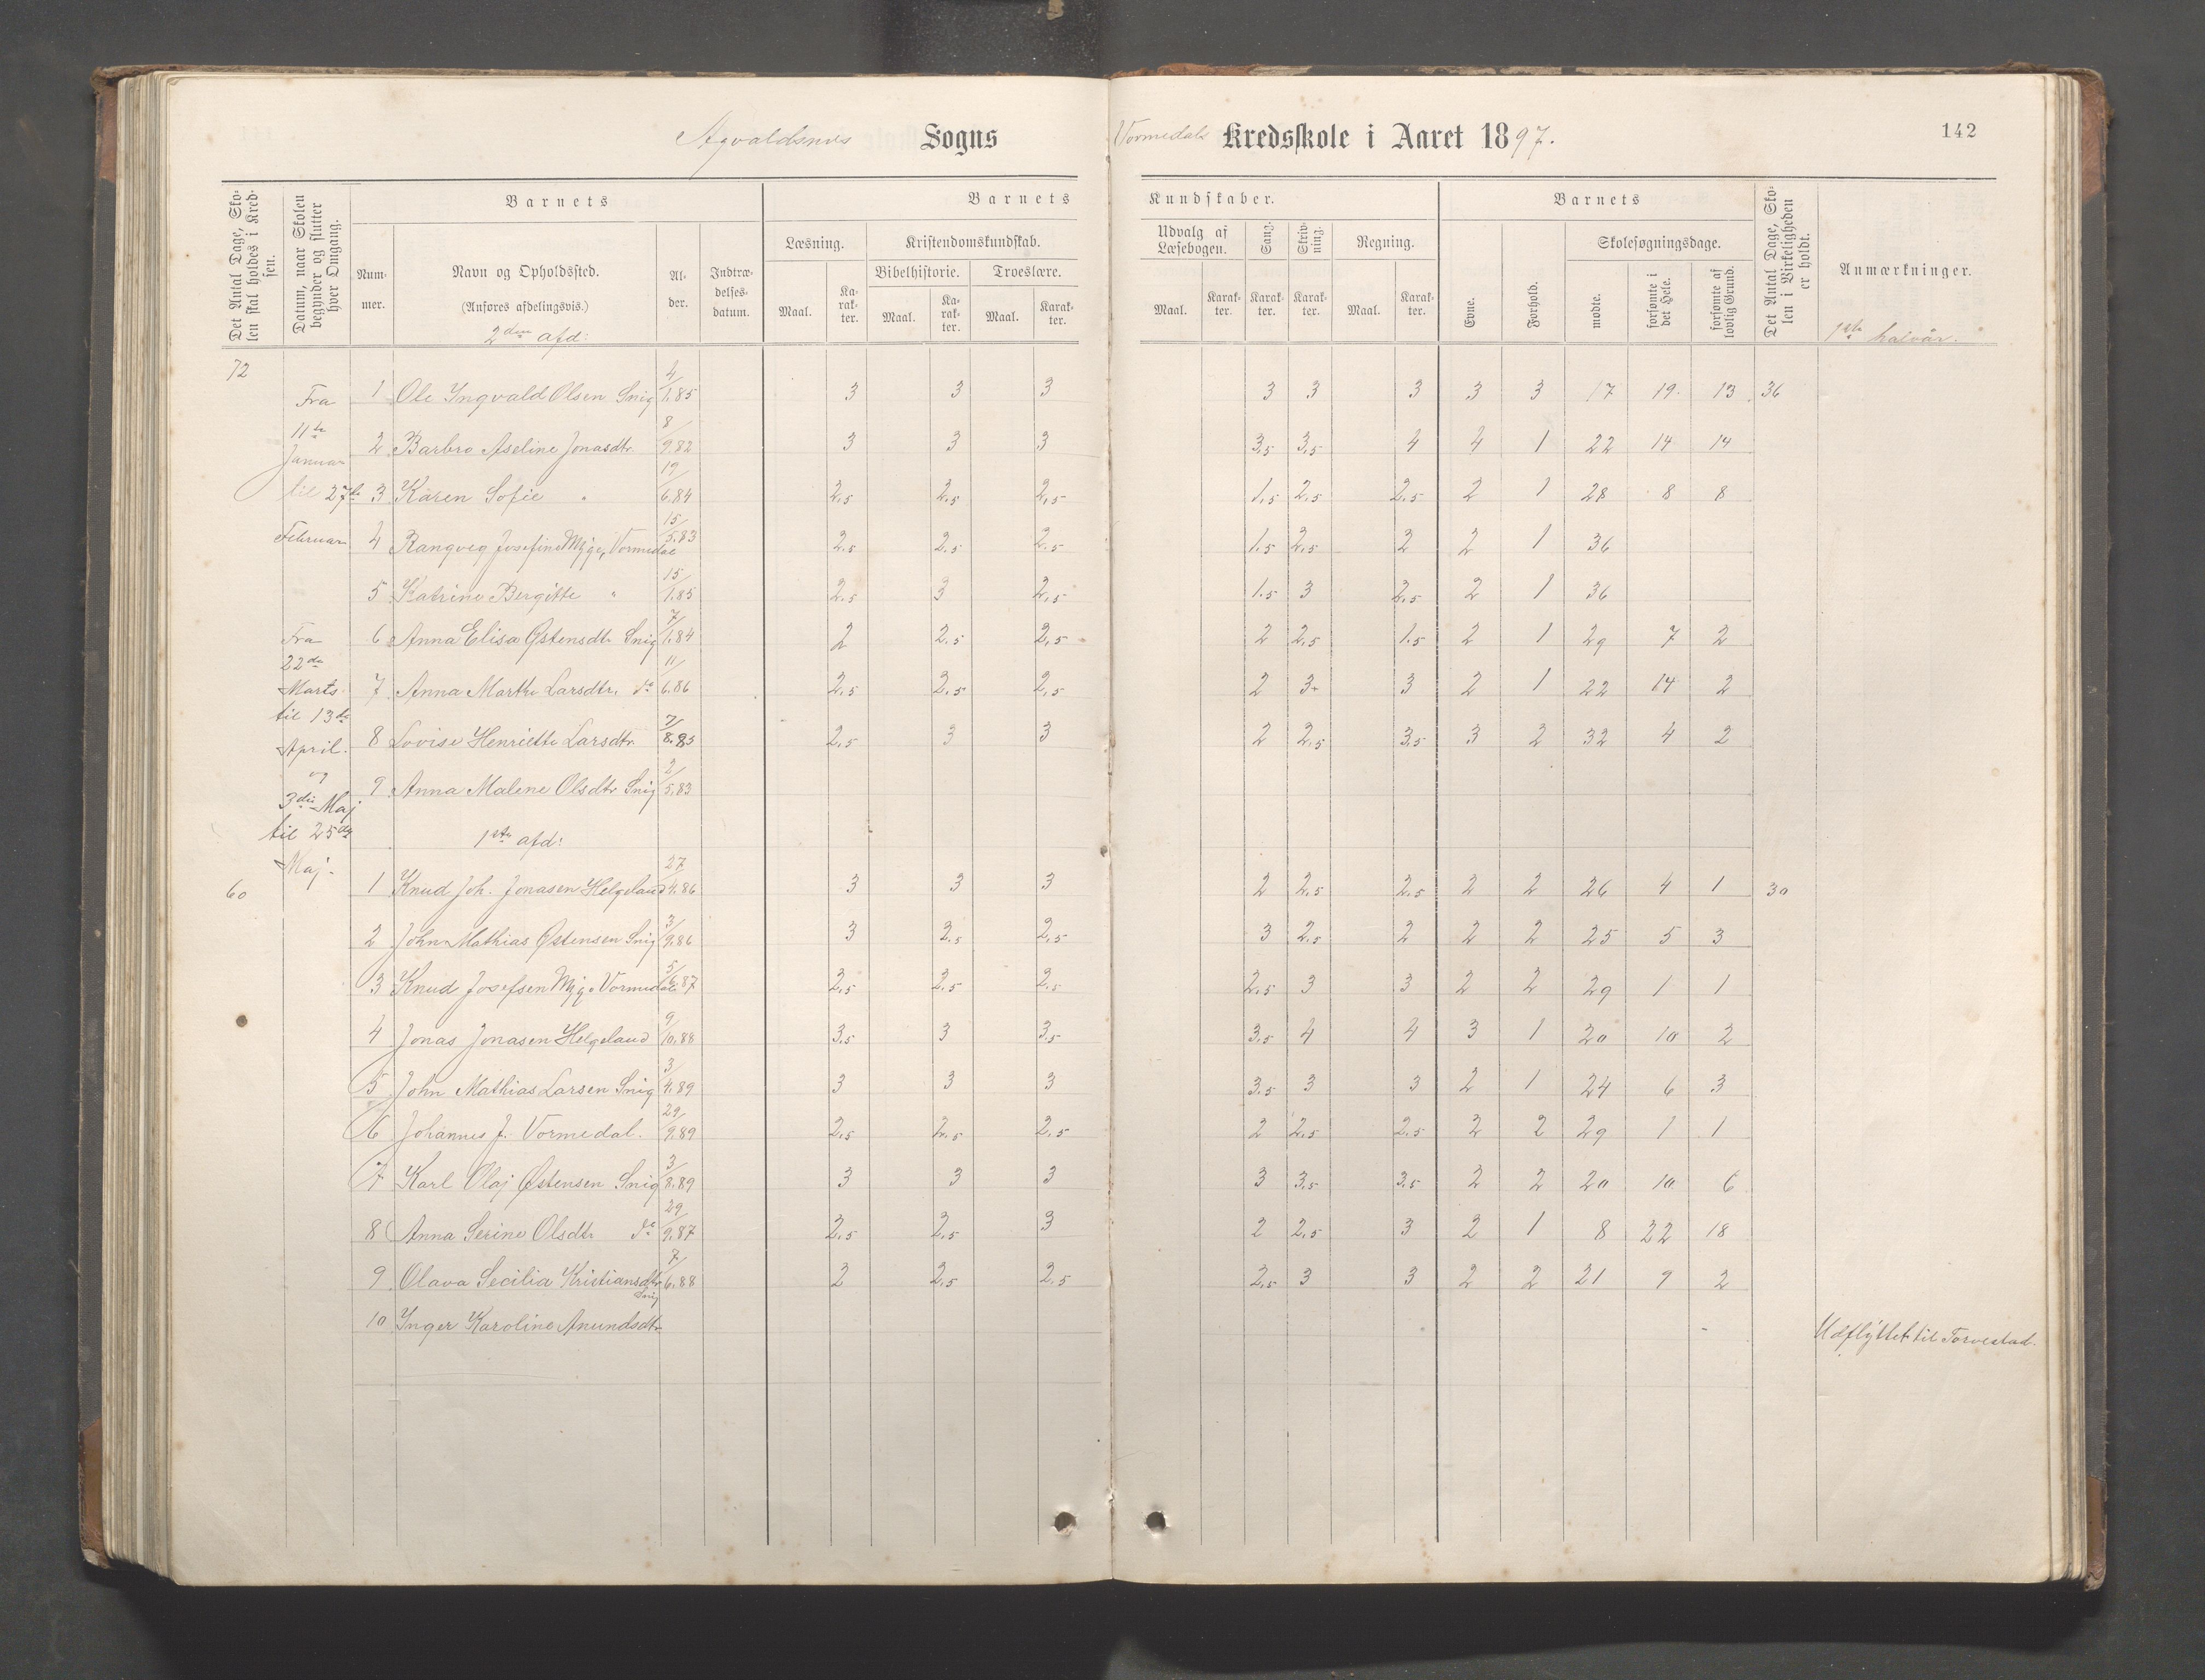 Sogns
Vormedals Kredsskole i Aaret 1897.
142
Det Antal Dage, Skolen skal holdes i Kredsen.
Datum, naar Skolen begynder og slutter hver Omgang.
Barnets
Nummer.
Navn og Opholdssted.
(Anføres afdelingsvis.)
2den afd:
Alder.
Indtrædelsesdatum.
Barnets
Kundskaber.
Læsning.
Kristendomskundskab.
Bibelhistorie.
Troeslære.
Maal.
Karakter.
Maal.
Karakter.
Maal.
Karakter.
Udvalg af Læsebogen.
Sang.
Skrivning.
Regning.
Maal.
Karakter.
Karakter.
Karakter.
Maal.
Karakter.
Barnets
Evne.
Forhold.
Skolesøgningsdage.
mødte.
forsømte i det Hele.
forsømte af lovlig Grund.
Det Antal Dage, Skolen i Virkeligheden er holdt.
Anmærkninger.
1ste halvår.
72
Fra
11te
Januar
til 27de
Februar
Fra
22de
Marts
til 13de
April.
og
3die Maj
til 25de
Maj.
1 Ole Yngvald Olsen Snig 4/1.85 3 3 3 3 3 3 3 3 17 19 13 36
2 Barbro Aseline Jonasdtr 8/9.82 3 3 3 3,5 3,5 4 4 1 22 14 14
3 Karen Sofie " 19/6.84 2,5 2,5 2,5 1,5 2,5 2,5 2 1 28 8 8
4 Rangveg Josefine Myge, Vormedal 15/5.83 2,5 2,5 2,5 1,5 2,5 2 2 1 36
5 Katrine Bergitte " 15/1.85 2,5 3 2,5 1.5 3 2,5 2 1 36
6 Anna Elisa Østensdtr Snig 7/1.84 2 2.5 2,5 2 2,5 1.5 2 1 29 7 2
7 Anna Marthe Larsdtr. do 11/6.86 2,5 2,5 2,5 2 3+ 3 2 1 22 14 2
8 Lovise Henriette Larsdtr. 7/8.85 2,5 3 3 2 2,5 3,5 3 2 32 4 2
9 Anna Malene Olsdtr Snig 2/5.83
1ste afd:
60
1 Knud Joh. Jonasen Helgeland 27/4.86 3 3 3 2 2,5 2,5 2 2 26 4 1 30
2 John Mathias Østensen Snig 3/9.86 3 2,5 2,5 3 2,5 2 2 2 25 5 3
3 Knud Josefsen Myge Vormedal 5/6.87 2,5 2,5 2,5 2,5 3 3 2 2 29 1 1
4 Jonas Jonasen Helgeland 9/10.88 3,5 3 3,5 3,5 4 4 3 1 20 10 2
5 John Mathias Larsen Snig 3/4.89 3 3 3 3,5 3 3 2 1 24 6 3
6 Johannes J. Vormedal. 29/9.89 2,5 2,5 2,5 2 2,5 2,5 2 2 29 1 1
7 Karl Olaj Østensen Snig 3/3.89 3 3 3 3 3,5 3,5 2 2 20 10 6
8 Anna Serine Olsdtr do 29/9.87 2,5 2,5 3 2 2,5 3 2 1 8 22 18
9 Olava Secilia Kristiansdtr 7/6.88 2 2,5 2,5 2,5 3 3 2 2 21 9 2
Snig
10 Inger Karoline Anundsdtr
Udflyttet til Torvestad.